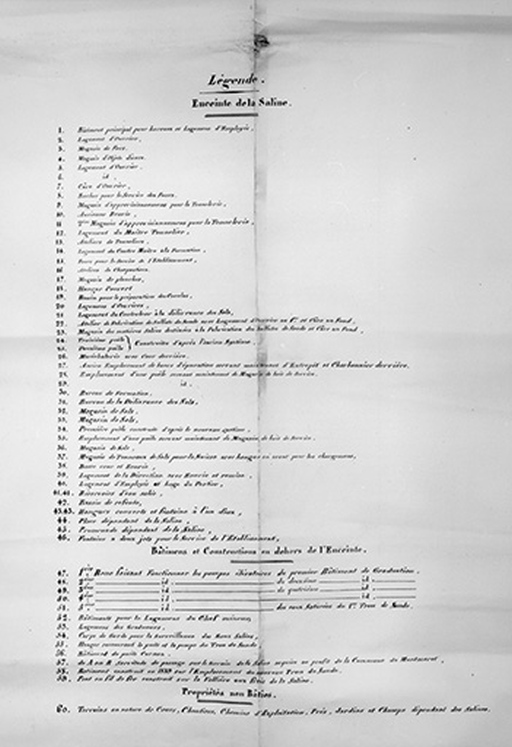 Légende.
Enceinte de la Saline.
1. Bâtiment principal pour bureaux et Logemens d'Employés.
2. Logement d'Ouvriers.
3. Magasin de
4. Magasin d'Objets divers.
5. Logement d'Ouvrier.
6. id.
7. d'Ouvrier.
8. pour le Service des
9. Magasin d'approvisionnement pour la Tonnellerie.
10. Ancienne
11. Magasin d'approvisionnement pour la Tonnellerie.
12. Logement du Maître Tonnelier.
13. Ateliers de Tonneliers.
14. Logement du Contre Maître à la Formation.
15. pour le Service de l'Etablissement.
16. Ateliers de Charpentiers.
17. Magasin de planches.
18. Hangar Couvert
19. Bassin pour la préparation des
20. Logemens d'Ouvriers.
21. Logement du Contrôleur à la délivrance des Sels.
22. Atelier de Fabrication de Sulfate de Soude avec Logement d'Ouvrier au 1er et Cave au Fond.
23. Magasin des matières Salées destinées à la Fabrication du Sulfate de Soude et Cave au Fond.
24. Troisième poêle
25. poêle } Construites d'après l'ancien Système.
26. Maréchalerie avec Cour derrière.
27. Ancien Emplacement de servant maintenant d'Entrepôt et Charbonnier derrière.
28. Emplacement d'une poêle servant maintenant de Magasin de bois de Service.
29. id.
30. Bureau de Formation.
31. Bureau de la Délivrance des Sels.
32. Magasin de Sels.
33. Magasin de Sels.
34. Première poêle construite d'après le nouveau système.
35. Emplacement d'une poêle servant maintenant de Magasin de bois de Service.
36. Magasin de Sels.
37. Magasin de Tonneaux de Sels pour la Suisse avec hangar en avant pour les chargemens.
38. Basse cour et Ecurie.
39. Logement de la Direction avec Ecurie et remise.
40. Logement d'Employés et Loge du Portier.
41.41. Réservoirs d'eau salée.
42. Bassin de
43.43. Hangars couverts et Fontaine à l'un d'eux.
44. Place dépendant de la Saline.
45. Promenade dépendant de la Saline.
46. Fontaine à deux jets pour le Service de l'Etablissement.
Bâtimens et Constructions en dehors de l'Enceinte.
47. 1ère Roue faisant Fonctionner les pompes élévatoires du premier Bâtiment de Graduation.
48. 2ème id. de deuxième id.
49. 3ème id. de quatrième id.
50. 4ème id. id.
51. 5ème id. des eaux Salées du 1er Trou de Sonde.
52. Bâtiments pour le Logement du Chef mineur.
53. Logement des Gradueurs.
54. Corps de Garde pour la Surveillance des Eaux Salées.
55. Hangar renfermant le puits et la pompe du Trou de Sonde
56. Bâtiment du puits
57. de A en B Servitude de passage sur le terrain de la Saline acquise au profit de la Commune de Montmorot.
58. Bâtiment construit en sur l'Emplacement du nouveau Trou de Sonde.
59. Pont en fil de fer construit sur la Vallière aux frais de la Saline.
Propriétés non Bâties.
60. Terrains en nature de Cours, Chantiers, Chemins d'Exploitation, Prés, Jardins et Champs dépendant des Salines.